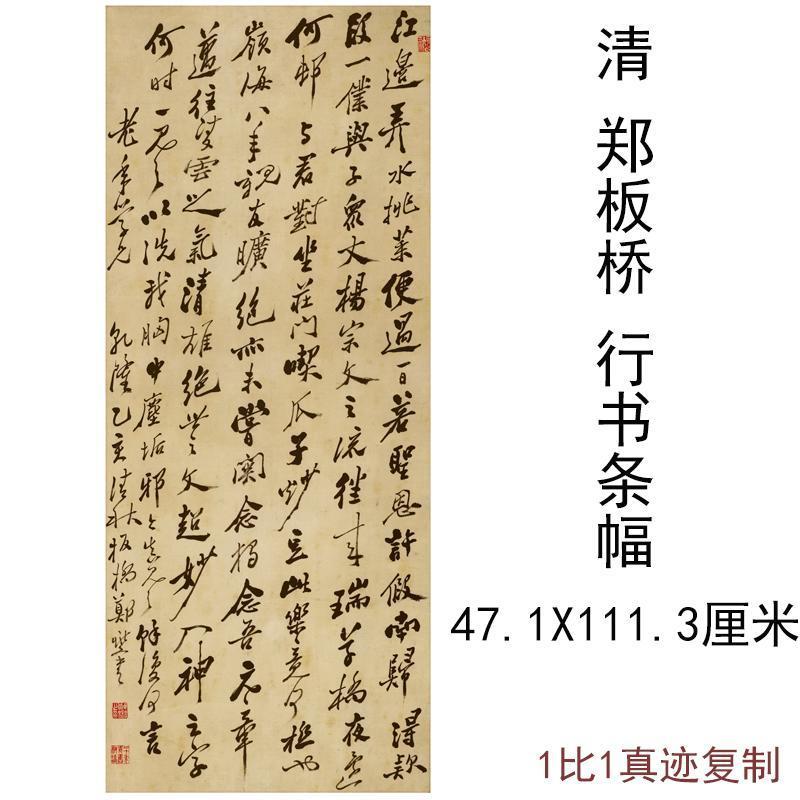 江邊弄水挑菜便過一日若聖恩許假南歸得款
段一僕與子衆丈楊宗文之流往來瑞草橋夜還
何邨与君對坐莊門喫瓜子炒豆此樂竟何極也
嶺海八年親友曠絕亦未嘗關念獨念吾元章
邁往凌雲之氣清雄絕世之文超妙入神之字
何時一見之以洗我胸中塵垢邪今真見之餘復何言
老年學兄 乾隆乙亥清秋板橋鄭燮書
清 郑板桥 行书条幅
47.1X111.3厘米
1比1真迹复制